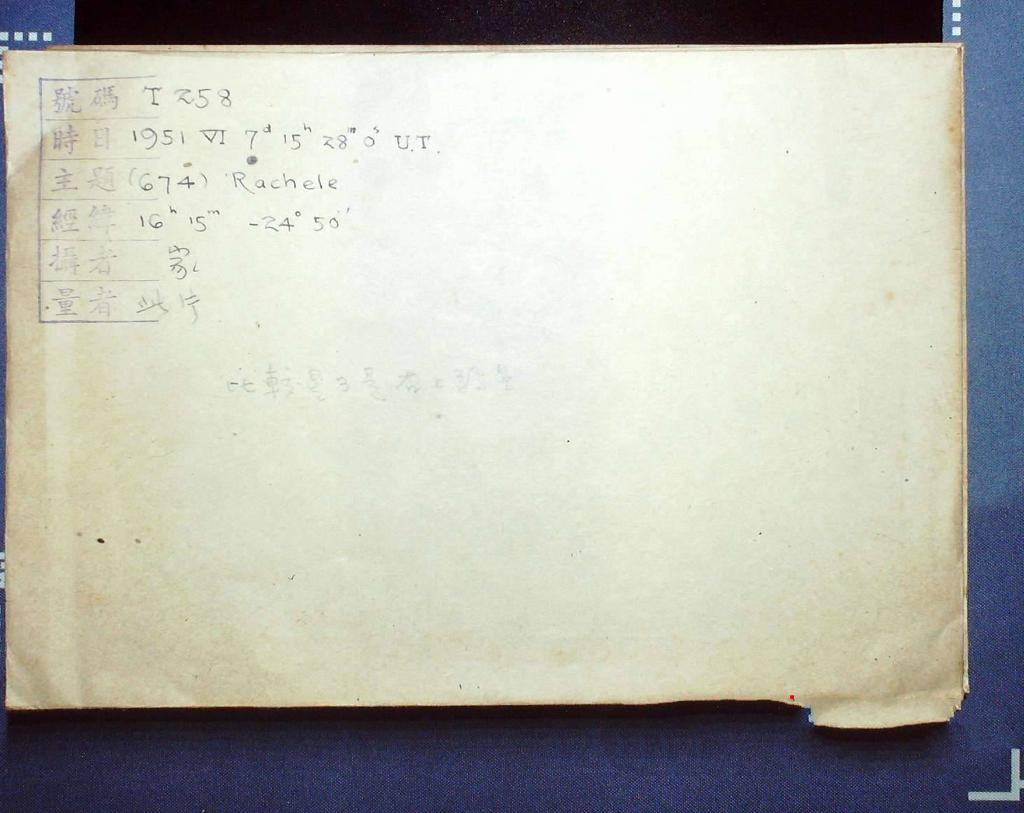 號碼 T 258
時日 1951 VI 7ᵈ 15ʰ 28ᵐ 0ˢ U.T.
主題 (674) Rachele
經緯 16ʰ 15ᵐ -24° 50'
攝者
量者 此片
比較星3是右上